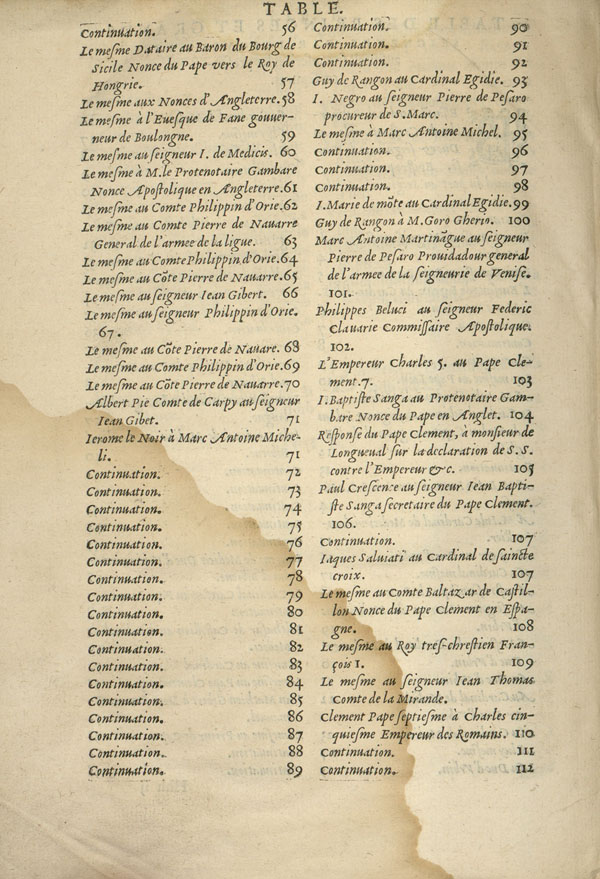 TABLE.
Continuation. 56
Le meſme Dataire au Baron du Bourg de
Sicile Nonce du Pape vers le Roy de
Hongrie. 57
Le meſme aux Nonces d'Angleterre. 58
Le meſme à l'Eueſque de Fane gouuer-
neur de Boulongne. 59
Le meſme au ſeigneur I. de Medicis. 60
Le meſme à M. le Protenotaire Gambare
Nonce Apoſtolique en Angleterre. 61
Le meſme au Comte Philippin d'Orie. 62
Le meſme au Comte Pierre de Nauarre
General de l'armee de la ligue. 63
Le meſme au Comte Philippin d'Orie. 64
Le meſme au Cõte Pierre de Nauarre. 65
Le meſme au ſeigneur Iean Gibert. 66
Le meſme au ſeigneur Philippin d'Orie.
67.
Le meſme au Cõte Pierre de Nauare. 68
Le meſme au Comte Philippin d'Orie. 69
Le meſme au Cõte Pierre de Nauarre. 70
Albert Pie Comte de Carpy au ſeigneur
Iean Gibet. 71
Ierome le Noir à Marc Antoine Miche-
li. 71
Continuation. 72
Continuation. 73
Continuation. 74
Continuation. 75
Continuation. 76
Continuation. 77
Continuation. 78
Continuation. 79
Continuation. 80
Continuation. 81
Continuation. 82
Continuation. 83
Continuation. 84
Continuation. 85
Continuation. 86
Continuation. 87
Continuation. 88
Continuation. 89
Continuation. 90
Continuation. 91
Continuation. 92
Guy de Rangon au Cardinal Egidie. 93
I. Negro au ſeigneur Pierre de Peſaro
procureur de S. Marc. 94
Le meſme à Marc Antoine Michel. 95
Continuation. 96
Continuation. 97
Continuation. 98
I. Marie de mõte au Cardinal Egidie. 99
Guy de Rangon à M. Goro Gherio. 100
Marc Antoine Martinãgue au ſeigneur
Pierre de Peſaro Prouidadour general
de l'armee de la ſeigneurie de Veniſe.
101.
Philippes Beluci au ſeigneur Federic
Clauarie Commiſſaire Apoſtolique.
102.
L'Empereur Charles 5. au Pape Cle-
ment. 7. 103
I. Baptiſte Sanga au Protenotaire Gam-
bare Nonce du Pape en Anglet. 104
Reſponſe du Pape Clement, à monſieur de
Longueual sur la declaration de S. S.
contre l'Empereur &c. 105
Paul Creſcence au ſeigneur Iean Bapti-
ſte Sanga secretaire du Pape Clement.
106.
Continuation. 107
Iaques Saluiati au Cardinal de ſaincte
croix. 107
Le meſme au Comte Baltazar de Caſtil-
lon Nonce du Pape Clement en Eſpa-
gne. 108
Le meſme au Roy treſ-chreſtien Fran-
çois I. 109
Le meſme au ſeigneur Iean Thomas
Comte de la Mirande.
Clement Pape ſeptieſme à Charles cin-
quieſme Empereur des Romains. 110
Continuation. 111
Continuation. 112